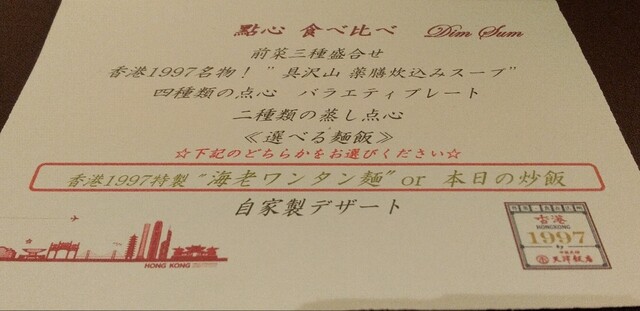 點心 食べ比べ Dim Sum
前菜三種盛合せ
香港1997名物！ "具沢山 薬膳炊込みスープ"
四種類の点心 バラエティプレート
二種類の蒸し点心
≪選べる麺飯≫
☆下記のどちらかをお選びください☆
香港1997特製 "海老ワンタン麺" or 本日の炒飯
自家製デザート
HONG KONG
香港
HONGKONG
1997